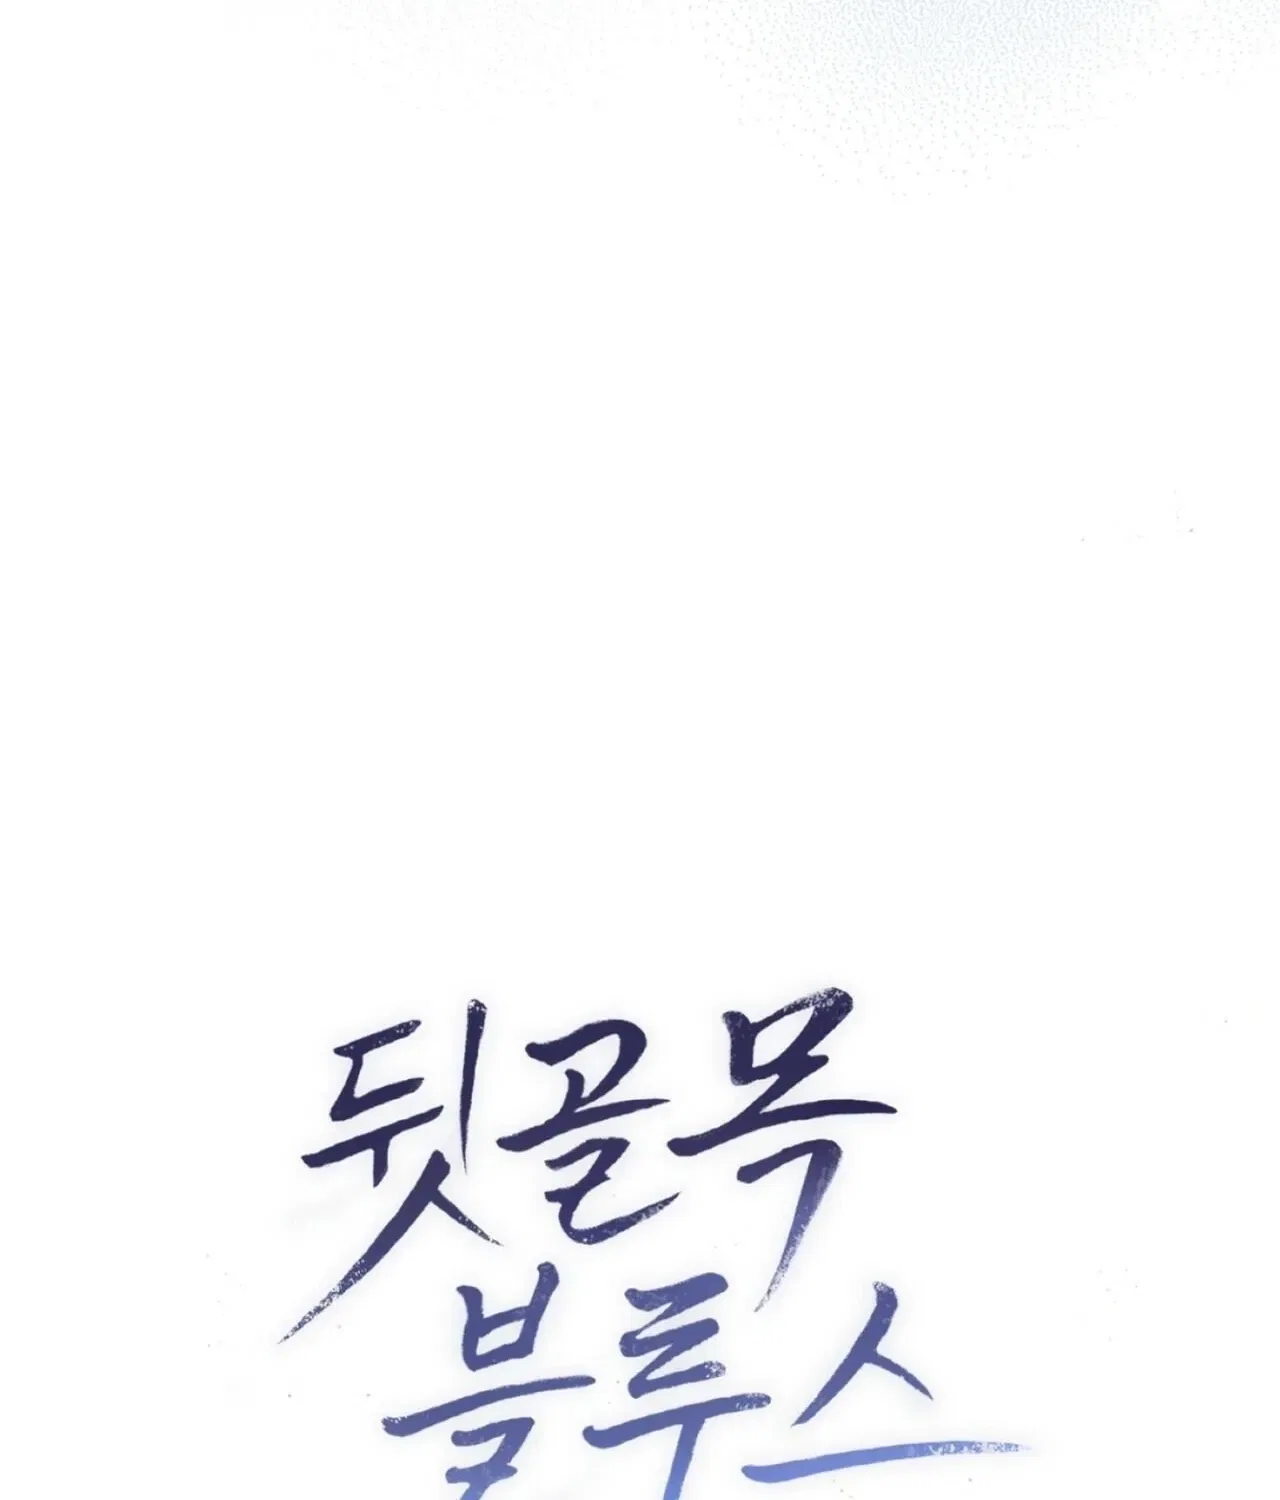 뒷골목
블루스